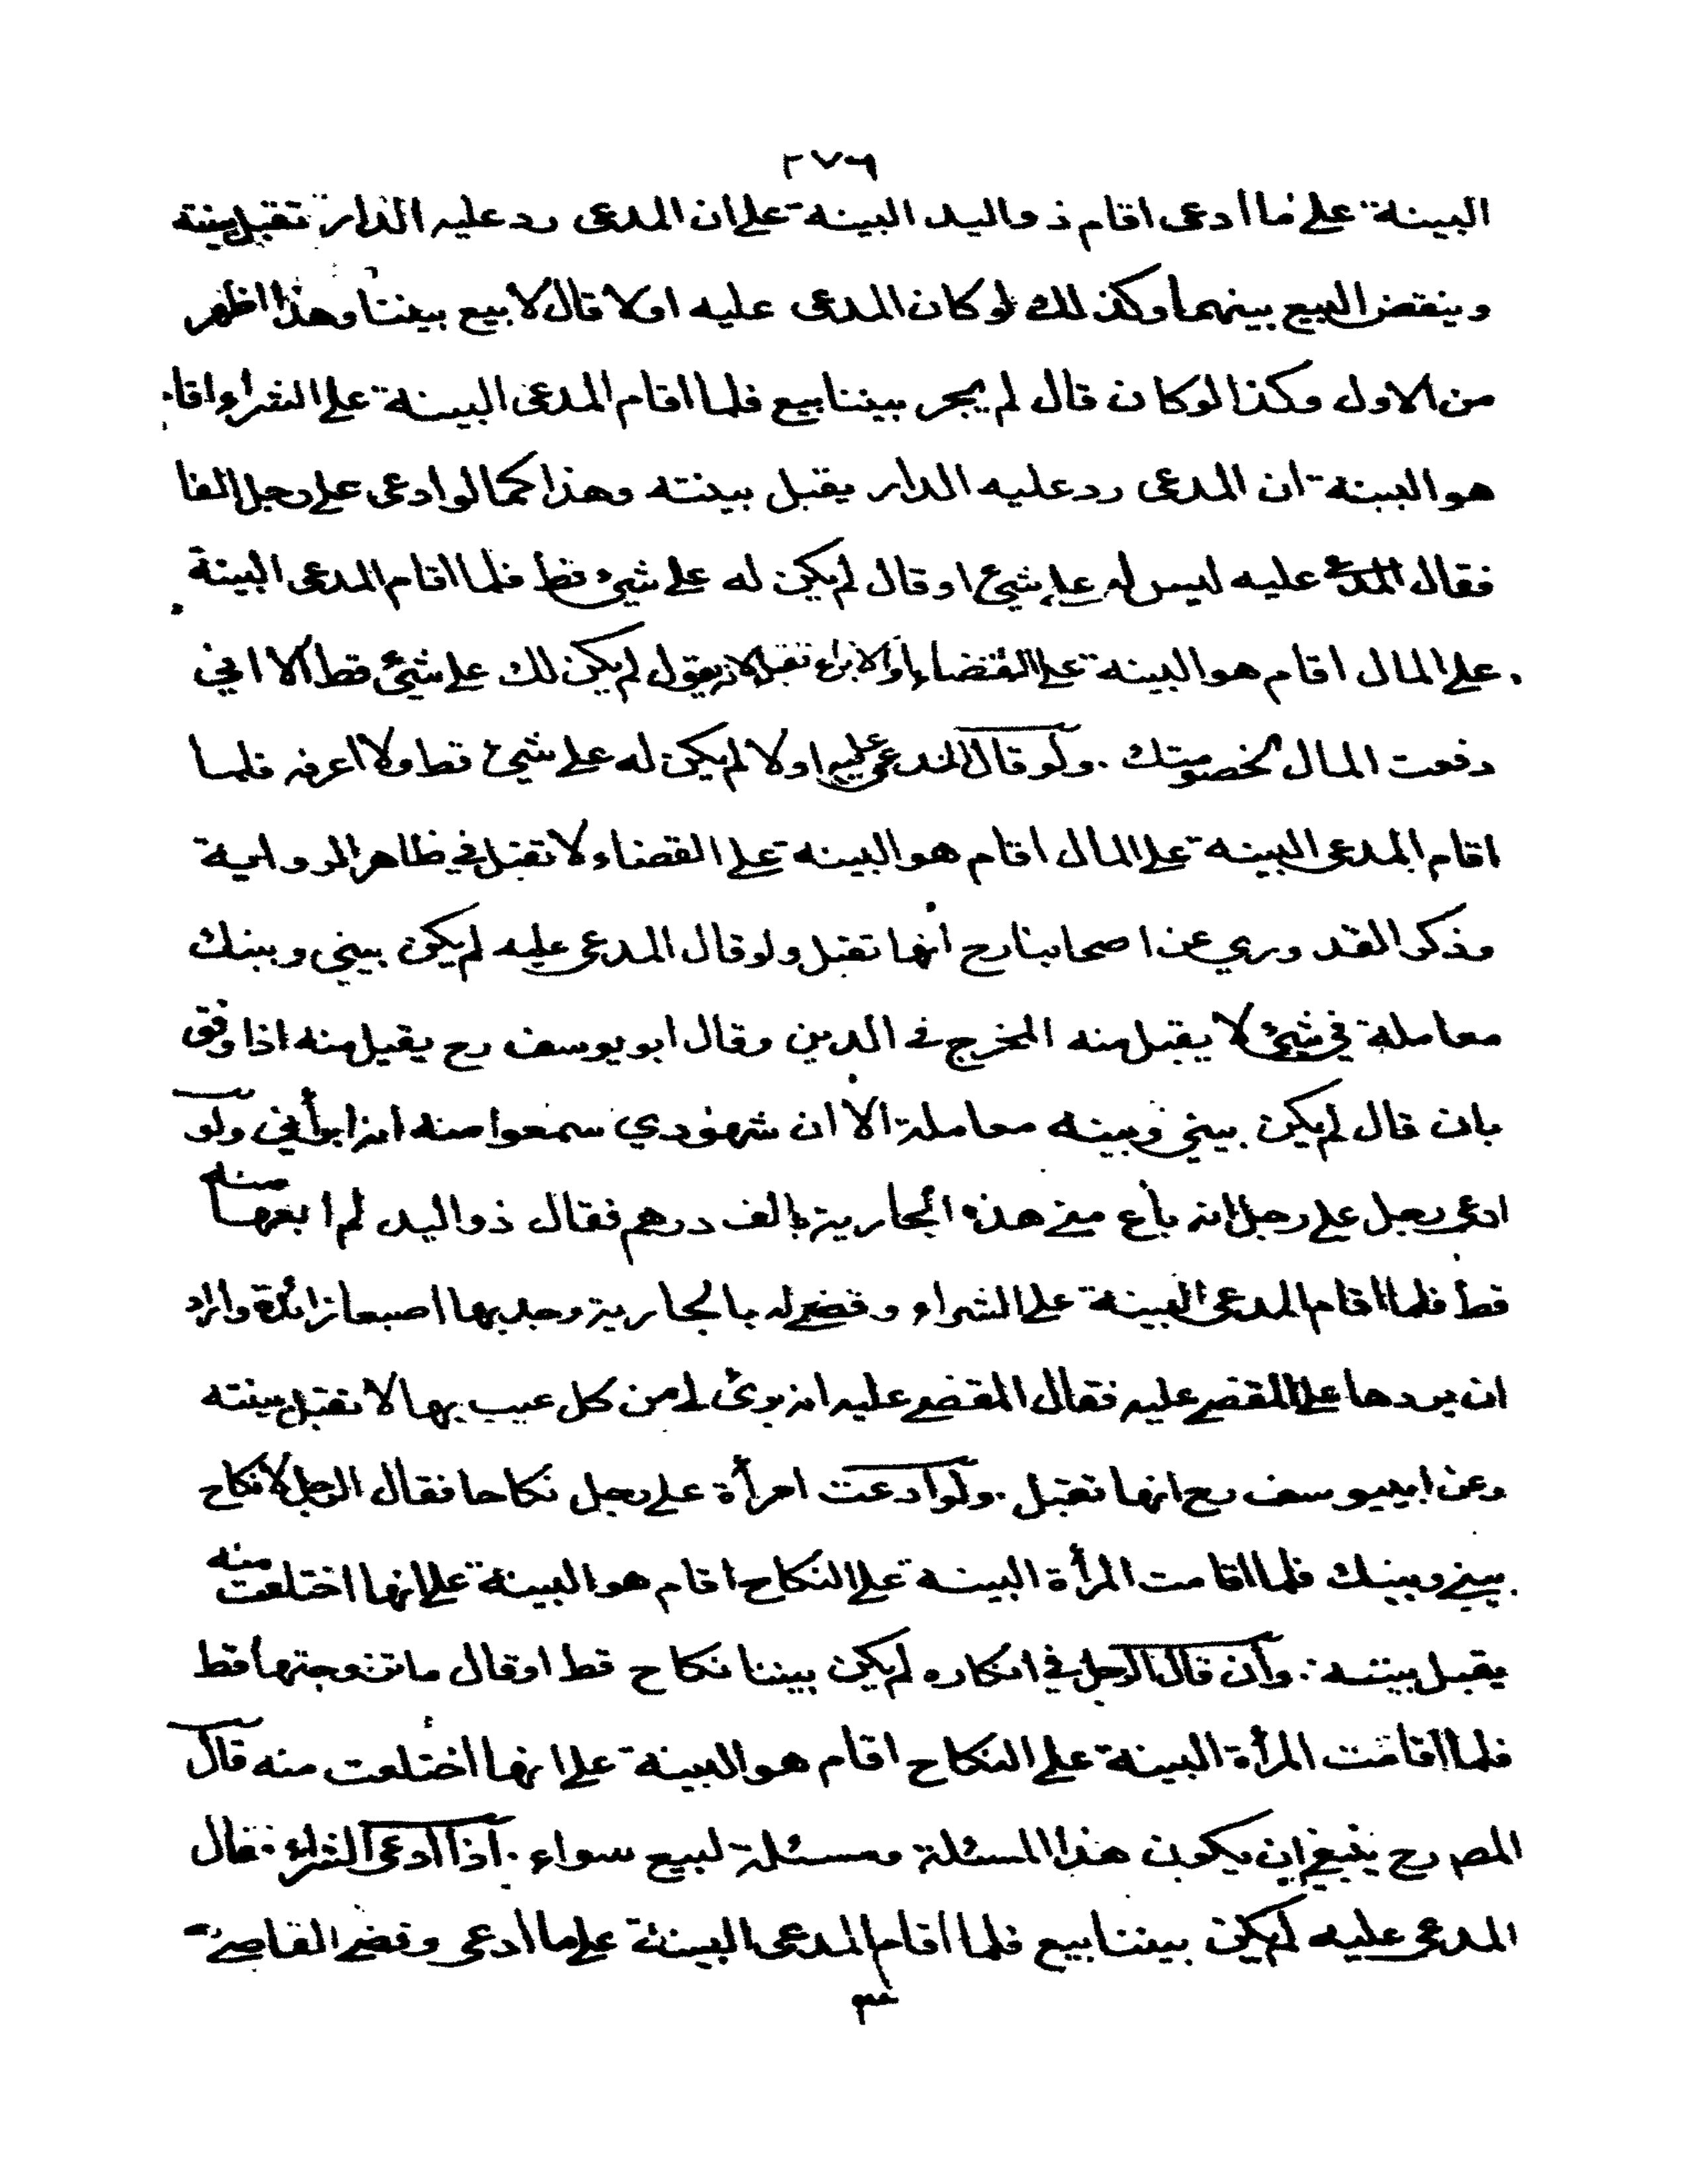 ٢٧٦
البينة على ما ادعى اقام ذو اليد البينة على ان المدعى رد عليه الدار تقبل بينته
وينقض البيع بينهما وكذلك لو كان المدعى عليه اولا قال لا بيع بيننا وهذا اظهر
من الاول وكذا لو كان قال لم يجر بيننا بيع فلما اقام المدعى البينة على الشراء واقام
هو البينة ان المدعى رد عليه الدار يقبل بينته وهذا كما لو ادعى على رجل الفا
فقال المدعى عليه ليس له علي شيئ او قال لم يكن له علي شيئ قط فلما اقام المدعى البينة
على المال اقام هو البينة على القضاء او الابراء تقبل لانه يقول لم يكن لك علي شيئ قط الا اني
دفعت المال لخصومتك . ولو قال المدعى عليه اولا لم يكن له علي شيئ قط ولا اعرفه فلما
اقام المدعى البينة على المال اقام هو البينة على القضاء لا تقبل في ظاهر الرواية
وذكر القد وري عن اصحابنا رح انها تقبل ولو قال المدعى عليه لم يكن بيني وبينك
معاملة في شيئ لا يقبل منه المخرج في الدين وقال ابو يوسف رح يقبل منه اذا وفق
بان قال لم يكن بيني وبينه معاملة الا ان شهودي سمعوا منه انه ابرأني ولو
ادعى رجل على رجل انه باع مني هذه الجارية بالف درهم فقال ذو اليد لم ابعها منه
قط فلما اقام المدعى البينة على الشراء وقضي له بالجارية وجد بها اصبعا زائدة واراد
ان يردها على المقضي عليه فقال المقضي عليه انه برئ لي من كل عيب بها لا تقبل بينته
وعن ابييوسف رح انها تقبل . ولو ادعت امرأة على رجل نكاحا فقال الرجل لا نكاح
بيني وبينك فلما اقامت المرأة البينة على النكاح اقام هو البينة على انها اختلعت منه
يقبل بينته . وان قال الرجل في انكاره لم يكن بيننا نكاح قط او قال ما تزوجتها قط
فلما اقامت المرأة البينة على النكاح اقام هو البينة على انها اختلعت منه قال
المص رح ينبغي ان يكون هذا المسئلة ومسئلة لبيع سواء . اذا ادعى الشراء فقال
المدعى عليه لم يكن بيننا بيع فلما اقام المدعى البينة على ما ادعى وقضى القاضي